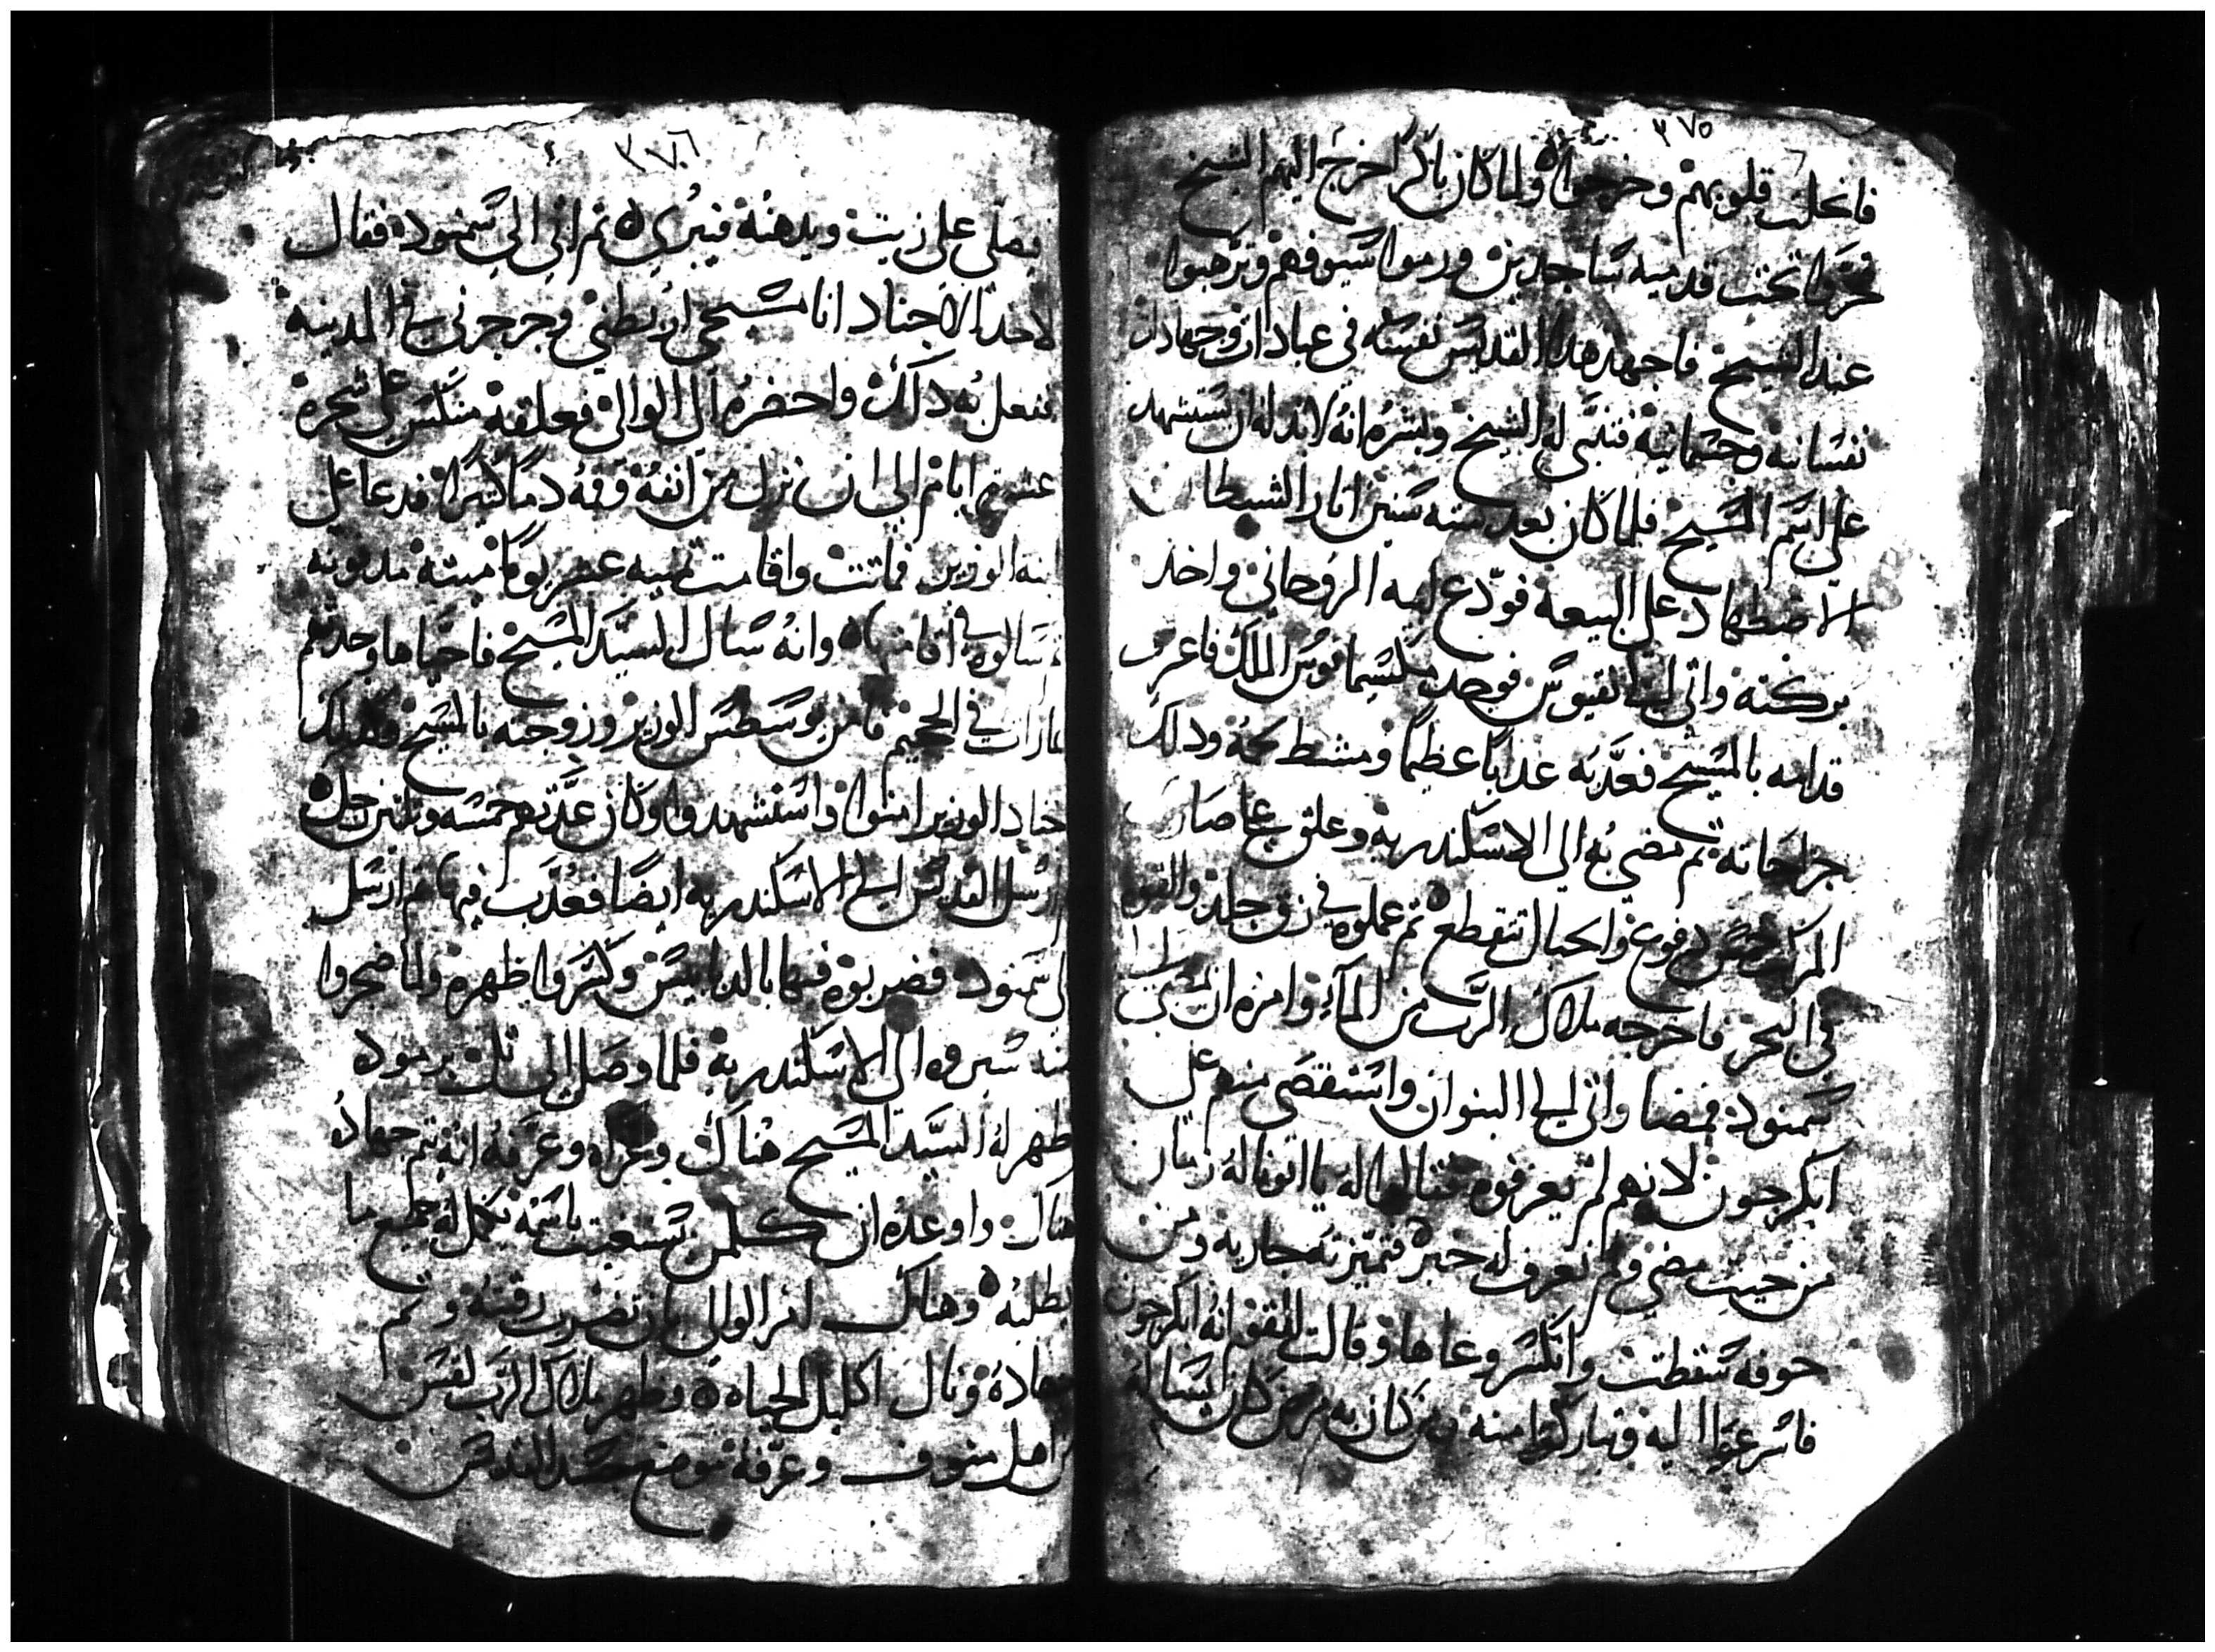 ٣٧٥
فانحلت قلوبهم وخرجوا ولما كان باكرا خرج اليهم الشيخ
فخروا تحت قدميه ساجدين ورموا سيوفهم وترهبوا
عند الشيخ فاجهد هذا القديس نفسه في عبادات وجهادات
نفسانيه وجسمانيه فتنبى له الشيخ وبشره انه لابد له ان يستشهد
على اسم المسيح فلما كان بعد سته سنين اثار الشيطان
الاضطهاد على البيعة فودع ابيه الروحاني واخذ
بركته واتى الى نقيوس فوجد مكسيمانوس الملك فاعترف
قدامه بالمسيح فعذبه عذابا عظيما ومشط لحمه ودلك
جراحاته ثم مضي به الي الاسكندريه وعلق على صاري
المركب خمس دفوع والحبال تتقطع ثم عملوه في زق جلد والقوه
في البحر فاخرجه ملاك الرب من الماء وامره ان يمشي الى
سمنود فمضا واتى الى البنوان واستقصى منهم على
ابكرجون لانهم لم يعرفوه فقالوا له يا ابونا له زمان
من حيث مضي ولم نعرف له خبر فميزته جاريه ومن
خوفه سقطت وانكسر وعاها وقالت للقوم انه ابكرجون
فاسرعوا اليه وتباركوا منه ومن كان به مرض كان يساله
٣٧٦
فيصلي على زيت ويدهنه فيبري ثم اتي الي سمنود فقال
لاحد الاجناد انا مسيحي اربطني وجرجرني في المدينه
ففعل به ذلك واحضره الى الوالي فعلقه منكس على شجره
عشره ايام الى ان نزل من انفه وفمه دما كثيرا فدعا على
ابنه الوزير فماتت واقامت ثمنيه عشر يوما ميته مدفونه
فسالوه في اقامتها وانه سال السيد المسيح فاحياها وحدثتهم
بما رات في الجحيم فامن يوسطس الوزير وزوجته بالمسيح وكذلك
اجناد الوزير امنوا واستشهدوا وكان عدتهم خمسه وثلثين رجل
ارسل القديس الي الاسكندريه ايضا فعذب فيها ثم ارسل
الى سمنود فضربوه فيها بالدبابيس وكسروا ظهره ولما ضجروا
منه سيروه الى الاسكندريه فلما وصل الى تلت برموده
ظهر له السيد المسيح هناك وعزاه وعرفه انه يتم جهاده
هناك واوعده ان كلمن يستغيت باسمه يكمل له جميع ما
يطلبه وهناك امر الوالي بان تضرب رقبته وتم
جهاده ونال اكليل الحياه وظهر ملاك الرب لقس
من اهل منوف وعرفه موضع جسد القديس